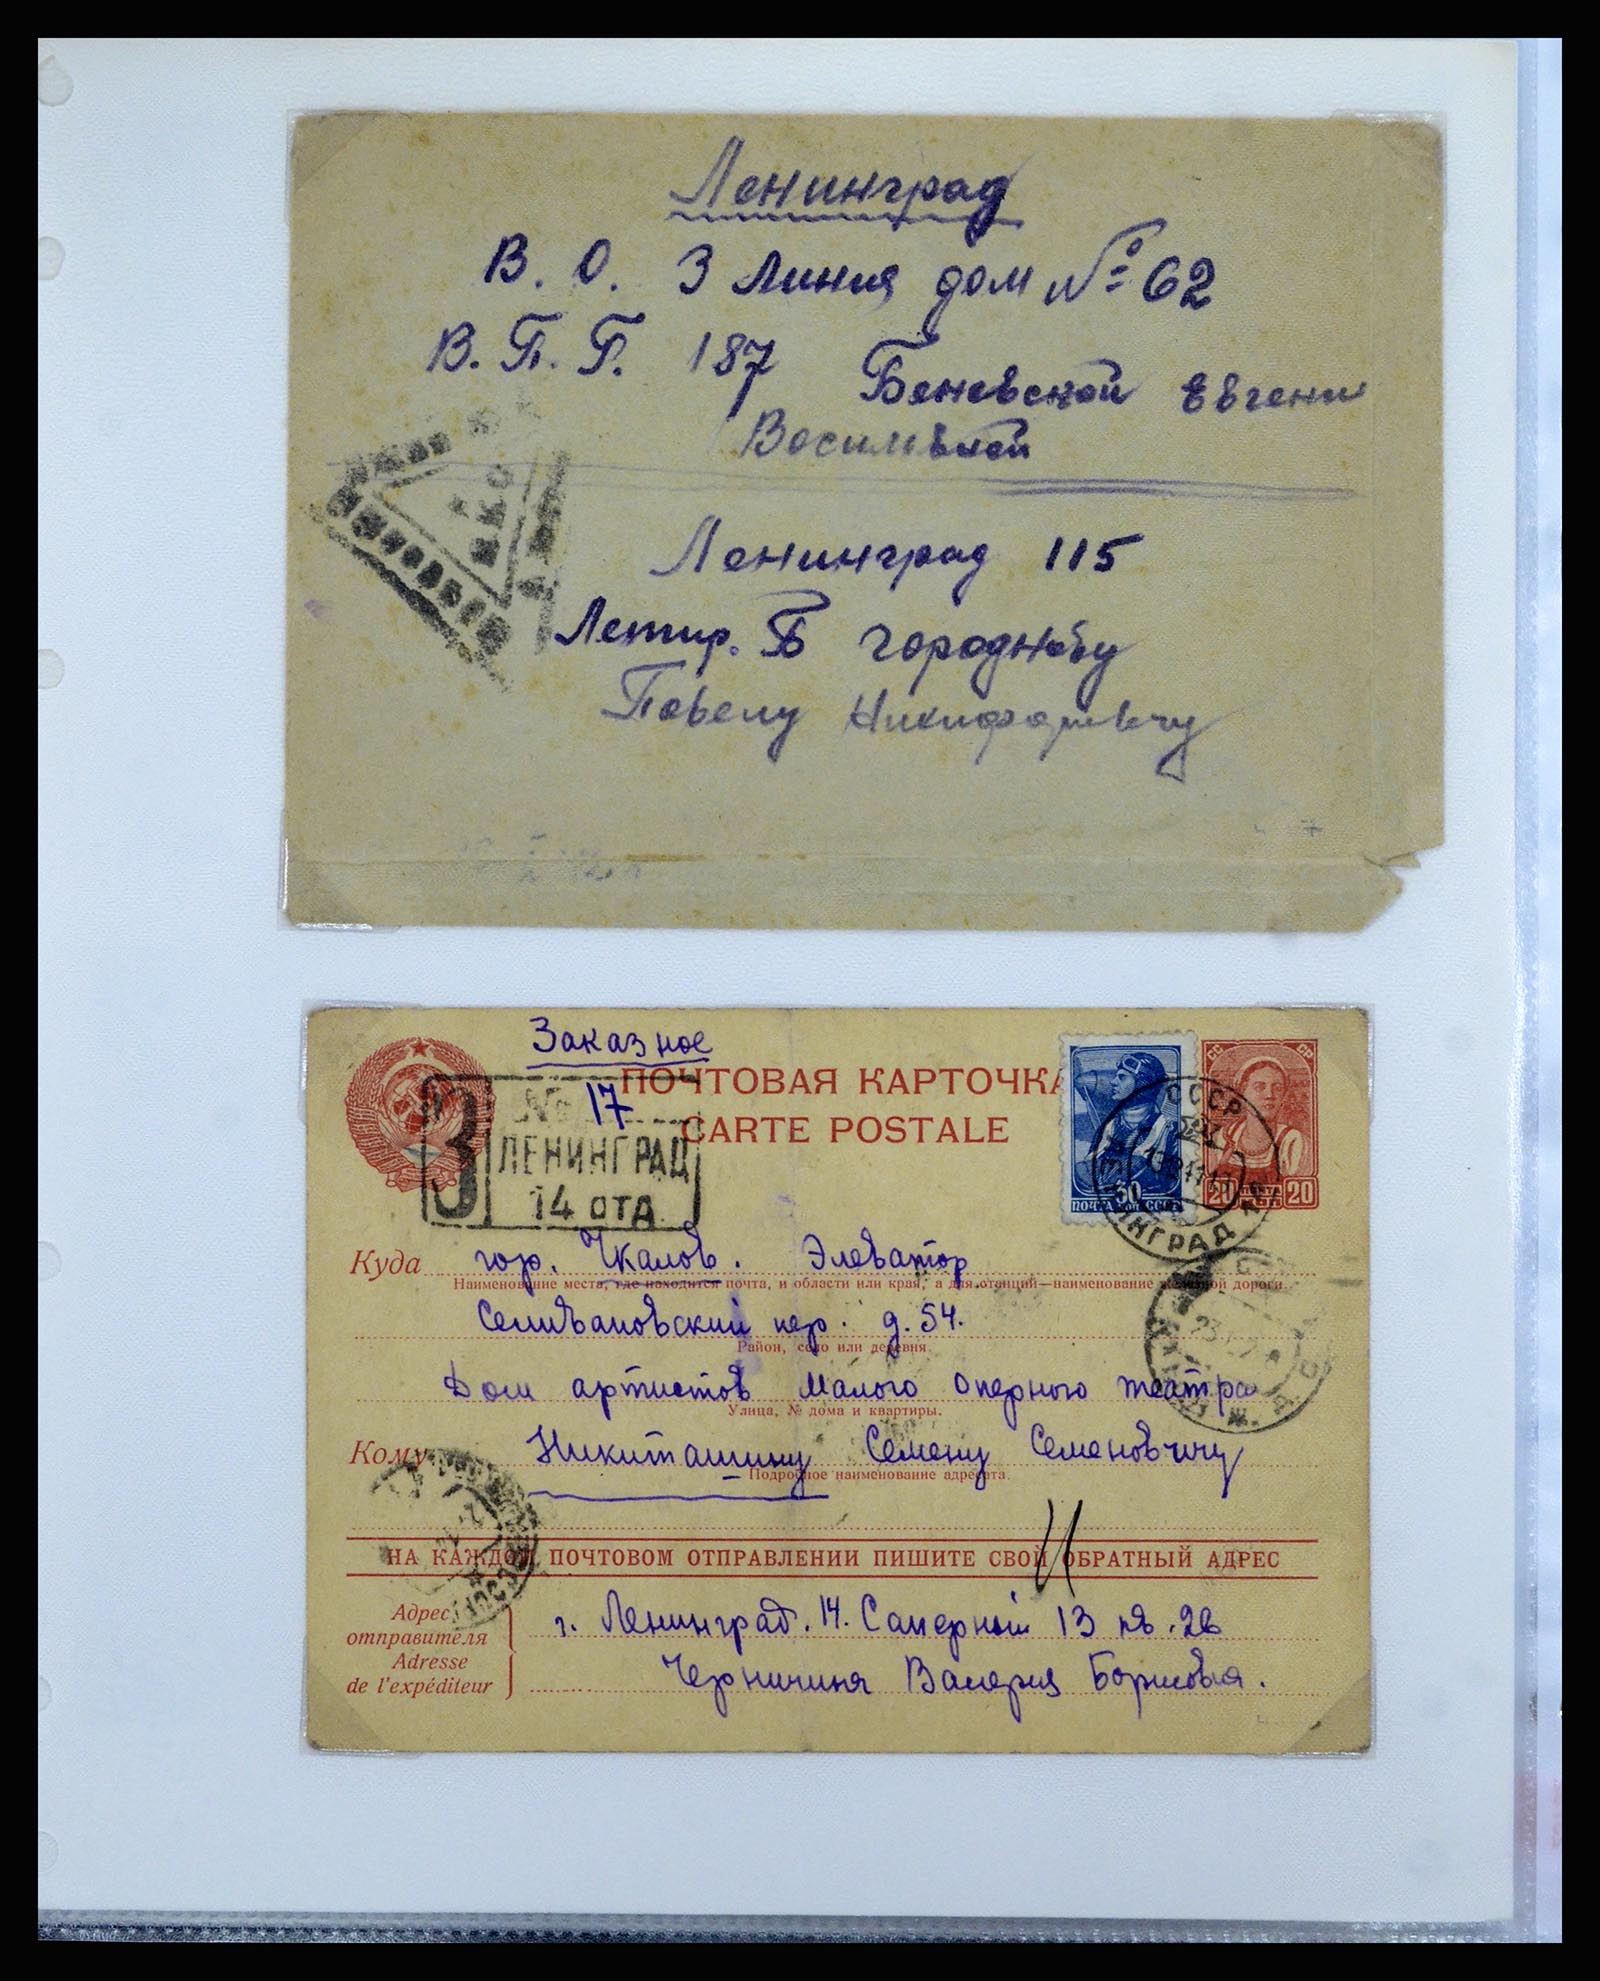 Ленинград
В. О. 3 линия дом № 62
В. П. П. 187 Беневской Евгени
Васильевой
Ленинград 115
Павелу Никифоровичу
Заказное
ПОЧТОВАЯ КАРТОЧКА
CARTE POSTALE
СС СР
20 20
30
ПОЧТА СССР
СССР
№ 17
З ЛЕНИНГРАД
14 ОТД.
Куда гор. Чкалов. Элеватор
Наименование места, где находится почта, и области или края, а для станций—наименование железной дороги
Селивановский пер. д. 54.
Район, село или деревня
Дом артистов Малого Оперного театра
Улица, № дома и квартиры.
Кому Никиташину Семену Семеновичу
Подробное наименование адресата
НА КАЖДОМ ПОЧТОВОМ ОТПРАВЛЕНИИ ПИШИТЕ СВОЙ ОБРАТНЫЙ АДРЕС
Адрес отправителя
Adresse de l'expéditeur
г. Ленинград. 14. Саперный 13 кв. 26
Валерия Борисовна.